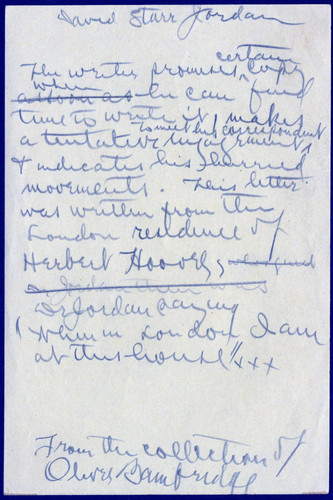 David Starr Jordan
certain
The writer promises ^ copy
when
as soon as he can find
time to write it, makes
to meet his correspondent
a tentative engagement ^
& indicates his hurried
movements. This letter
was written from the
London residence of
Herbert Hoover,
Dr Jordan saying
"When in London I am
at this house" xxx
From the collection of
Oliver Bambridge